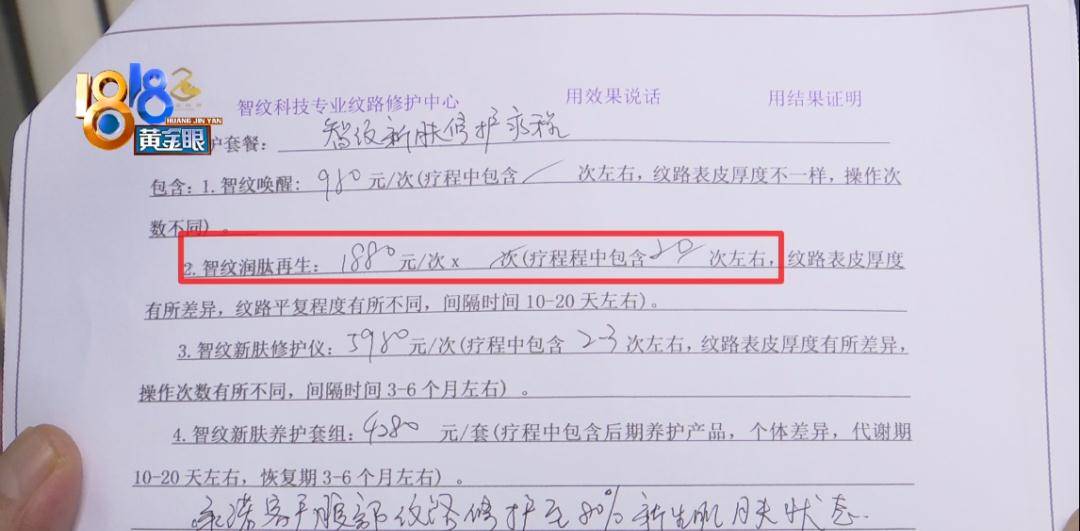 1818
HUANG JIN YAN
黄金眼
智纹科技专业纹路修护中心 用效果说话 用结果证明
护套餐: 智纹新肤修护疗程
包含: 1. 智纹唤醒: 980 元/次(疗程中包含 / 次左右, 纹路表皮厚度不一样, 操作次
数不同) 。
2. 智纹润肽再生: 1880 元/次 x 次(疗程程中包含 20 次左右, 纹路表皮厚度
有所差异, 纹路平复程度有所不同, 间隔时间 10-20 天左右)。
3. 智纹新肤修护仪: 5980 元/次(疗程中包含 2-3 次左右, 纹路表皮厚度有所差异,
操作次数有所不同, 间隔时间 3-6 个月左右) 。
4. 智纹新肤养护套组: 4280 元/套(疗程中包含后期养护产品, 个体差异, 代谢期
10-20 天左右, 恢复期 3-6 个月左右) 。
承诺客户腹部纹路修护至80%新生肌肤状态.